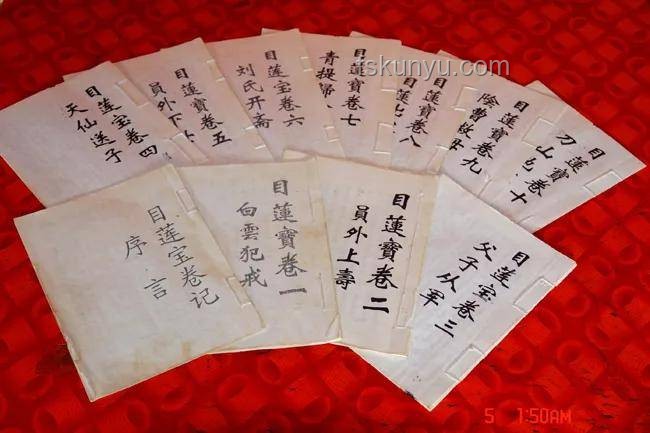 fskunyu.com
目莲宝卷四
天仙送子
目蓮寶卷五
員外下
目莲宝卷六
刘氏开斋
目蓮寶卷七
青提歸
目蓮寶卷八
目蓮
目蓮寶卷九
陰曹救母
目蓮寶卷十
刀山
目莲宝卷记
序言
目蓮寶卷一
白雲犯戒
目蓮寶卷二
員外上壽
目莲宝卷三
父子从军
5 1:50AM